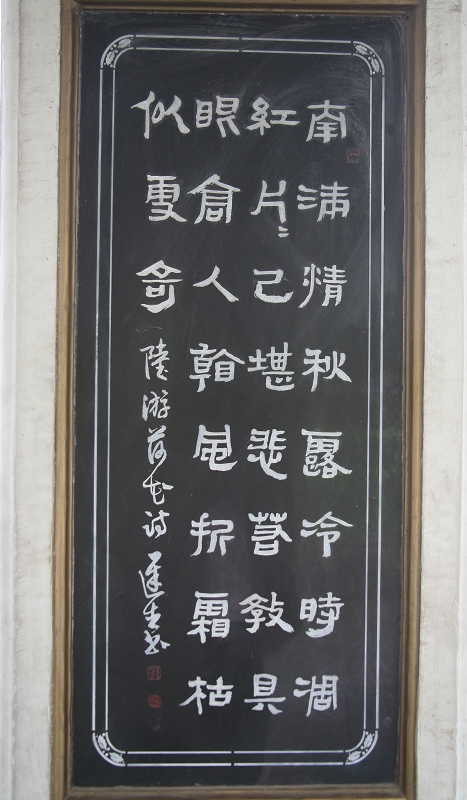 南浦情秋露冷時凋
紅片〻已堪悲若教具
眼倉人翰風折霜枯
似更奇 陸游荷花詩 书